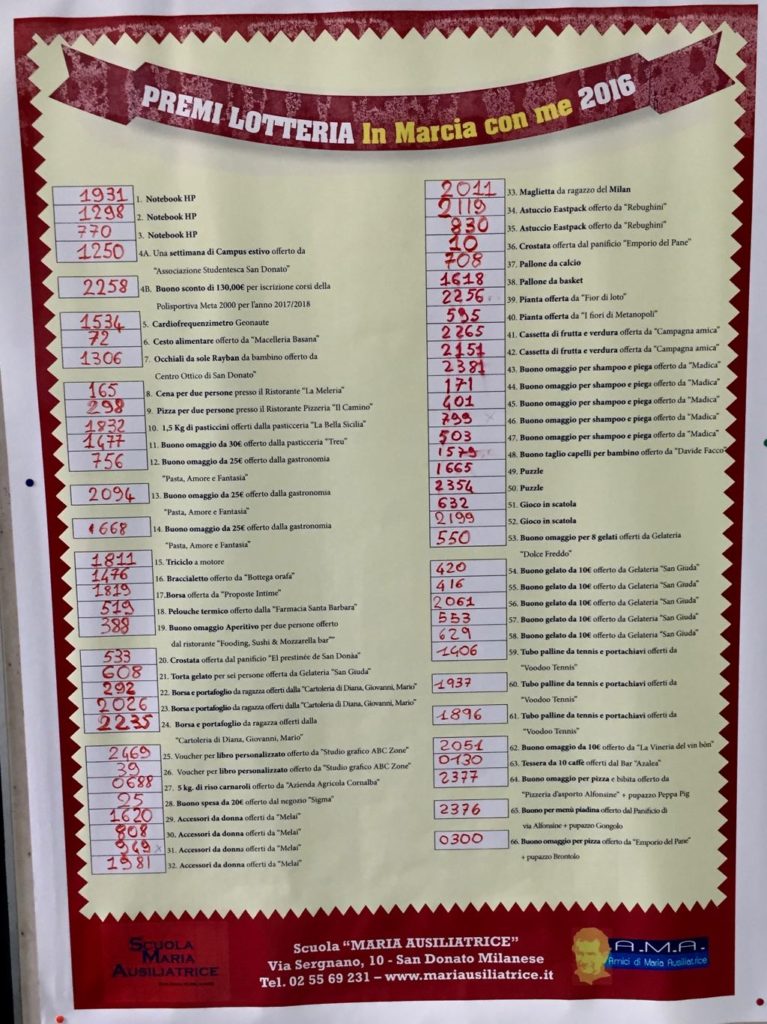 PREMI LOTTERIA In Marcia con me 2016
1931 1. Notebook HP
1298 2. Notebook HP
770 3. Notebook HP
1250 4A. Una settimana di Campus estivo offerto da
"Associazione Studentesca San Donato"
2258 4B. Buono sconto di 130,00€ per iscrizione corsi della
Polisportiva Meta 2000 per l'anno 2017/2018
1534 5. Cardiofrequenzimetro Geonaute
72 6. Cesto alimentare offerto da "Macelleria Basana"
1306 7. Occhiali da sole Rayban da bambino offerto da
Centro Ottico di San Donato"
165 8. Cena per due persone presso il Ristorante "La Meleria"
298 9. Pizza per due persone presso il Ristorante Pizzeria "Il Camino"
1832 10. 1,5 Kg di pasticcini offerti dalla pasticceria "La Bella Sicilia"
1477 11. Buono omaggio da 30€ offerto dalla pasticceria "Treu"
756 12. Buono omaggio da 25€ offerto dalla gastronomia
"Pasta, Amore e Fantasia"
2094 13. Buono omaggio da 25€ offerto dalla gastronomia
"Pasta, Amore e Fantasia"
1668 14. Buono omaggio da 25€ offerto dalla gastronomia
"Pasta, Amore e Fantasia"
1811 15. Triciclo a motore
1476 16. Braccialetto offerto da "Bottega orafa"
1819 17. Borsa offerta da "Proposte Intime"
519 18. Pelouche termico offerto dalla "Farmacia Santa Barbara"
388 19. Buono omaggio Aperitivo per due persone offerto
dal ristorante "Fooding, Sushi & Mozzarella bar""
533 20. Crostata offerta dal panificio "El prestinée de San Donàa"
608 21. Torta gelato per sei persone offerta da Gelateria "San Giuda"
292 22. Borsa e portafoglio da ragazza offerti dalla "Cartoleria di Diana, Giovanni, Mario"
2026 23. Borsa e portafoglio da ragazza offerti dalla "Cartoleria di Diana, Giovanni, Mario"
2235 24. Borsa e portafoglio da ragazza offerti dalla
"Cartoleria di Diana, Giovanni, Mario"
2469 25. Voucher per libro personalizzato offerto da "Studio grafico ABC Zone"
39 26. Voucher per libro personalizzato offerto da "Studio grafico ABC Zone"
0688 27. 5 kg. di riso carnaroli offerto da "Azienda Agricola Cornalba"
25 28. Buono spesa da 20€ offerto dal negozio "Sigma"
1620 29. Accessori da donna offerti da "Melai"
808 30. Accessori da donna offerti da "Melai"
949 31. Accessori da donna offerti da "Melai"
1981 32. Accessori da donna offerti da "Melai"
2011 33. Maglietta da ragazzo del Milan
2119 34. Astuccio Eastpack offerto da "Rebughini"
830 35. Astuccio Eastpack offerto da "Rebughini"
10 36. Crostata offerta dal panificio "Emporio del Pane"
708 37. Pallone da calcio
1618 38. Pallone da basket
2256 39. Pianta offerta da "Fior di loto"
595 40. Pianta offerta da "I fiori di Metanopoli"
2265 41. Cassetta di frutta e verdura offerta da "Campagna amica"
2151 42. Cassetta di frutta e verdura offerta da "Campagna amica"
2381 43. Buono omaggio per shampoo e piega offerto da "Madica"
171 44. Buono omaggio per shampoo e piega offerto da "Madica"
401 45. Buono omaggio per shampoo e piega offerto da "Madica"
799 46. Buono omaggio per shampoo e piega offerto da "Madica"
503 47. Buono omaggio per shampoo e piega offerto da "Madica"
1579 48. Buono taglio capelli per bambino offerto da "Davide Facco"
1665 49. Puzzle
2354 50. Puzzle
632 51. Gioco in scatola
2199 52. Gioco in scatola
550 53. Buono omaggio per 8 gelati offerti da Gelateria
"Dolce Freddo"
420 54. Buono gelato da 10€ offerto da Gelateria "San Giuda"
416 55. Buono gelato da 10€ offerto da Gelateria "San Giuda"
2061 56. Buono gelato da 10€ offerto da Gelateria "San Giuda"
553 57. Buono gelato da 10€ offerto da Gelateria "San Giuda"
629 58. Buono gelato da 10€ offerto da Gelateria "San Giuda"
1406 59. Tubo palline da tennis e portachiavi offerti da
"Voodoo Tennis"
1937 60. Tubo palline da tennis e portachiavi offerti da
"Voodoo Tennis"
1896 61. Tubo palline da tennis e portachiavi offerti da
"Voodoo Tennis"
2051 62. Buono omaggio da 10€ offerto da "La Vineria del vin bòn"
0130 63. Tessera da 10 caffè offerti dal Bar "Azalea"
2377 64. Buono omaggio per pizza e bibita offerto da
"Pizzeria d'asporto Alfonsine" + pupazzo Peppa Pig
2376 65. Buono per menù piadina offerto dal Panificio di
via Alfonsine + pupazzo Gongolo
0300 66. Buono omaggio per pizza offerto da "Emporio del Pane"
+ pupazzo Brontolo
SCUOLA
MARIA
AUSILIATRICE
Scuola "MARIA AUSILIATRICE"
Via Sergnano, 10 - San Donato Milanese
Tel. 02 55 69 231 – www.mariausiliatrice.it
A.M.A.
Amici di Maria Ausiliatrice